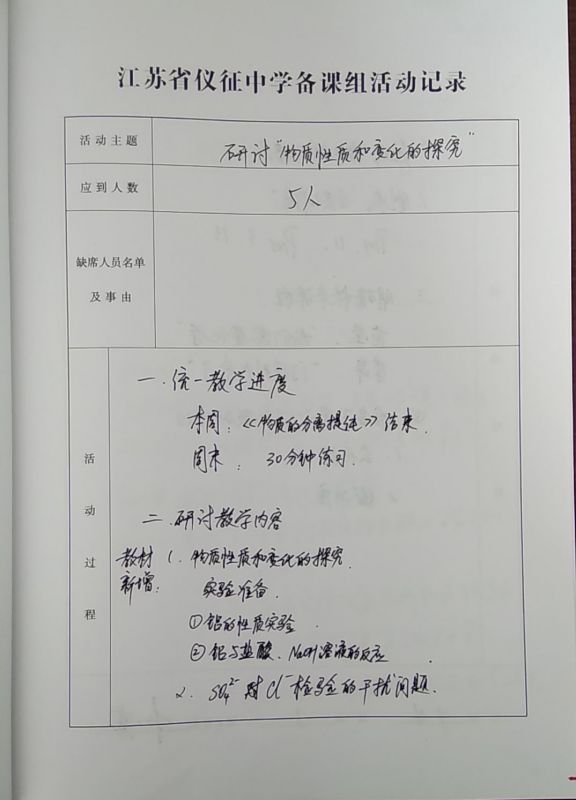 江苏省仪征中学备课组活动记录
活动主题
研讨“物质性质和变化的探究”
应到人数
5人
缺席人员名单
及事由
活动过程
一.统一教学进度
本周:《物质的分离提纯》结束.
周末:30分钟练习.
二.研讨教学内容
教材新增:
1.物质性质和变化的探究.
实验准备.
①铝的性质实验.
②铝与盐酸、NaOH溶液的反应.
2.SO₄²⁻对Cl⁻检验的干扰问题.